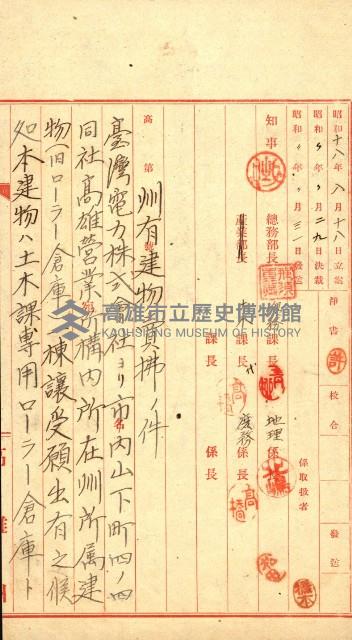 昭和十八年八月十八日立案
昭和〃年〃月二九日決裁
昭和〃年〃月三一日發送
淨書
校合
發送
知事
總務部長
課長
地理係長
係取扱者
產業部長
課長
庶務係長
課長
係長
高第 號
州有建物賣拂ノ件
臺灣電力株式會社ヨリ市內山下町四ノ四
同社高雄營業所構內所在州所属建
物(旧ローラー倉庫)一棟讓受願出有之候
処本建物ハ土木課專用ローラー倉庫ト
高雄州
高雄市立歷史博物館
KAOHSIUNG MUSEUM OF HISTORY